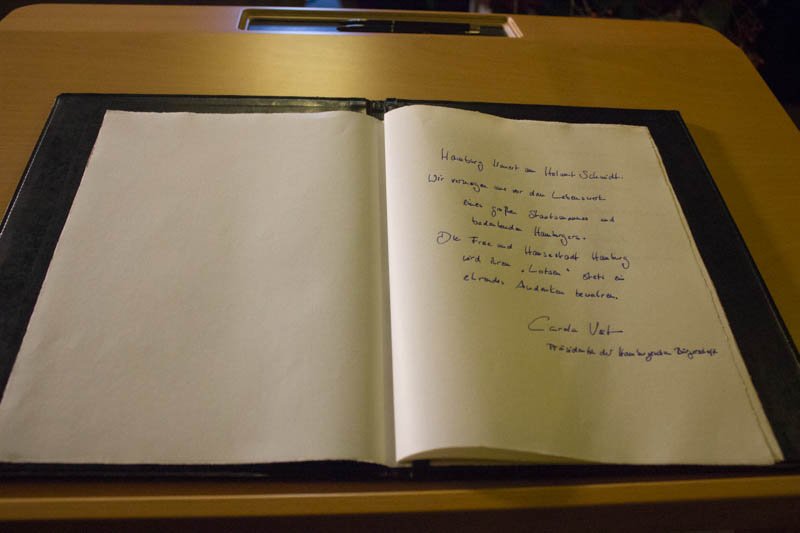 Hamburg trauert um Helmut Schmidt.
Wir verneigen uns vor dem Lebenswerk
eines großen Staatsmannes und
bedeutenden Hamburgers.
Die Freie und Hansestadt Hamburg
wird ihrem „Lotsen“ stets ein
ehrendes Andenken bewahren.
Carola Veit
Präsidentin der Hamburgischen Bürgerschaft